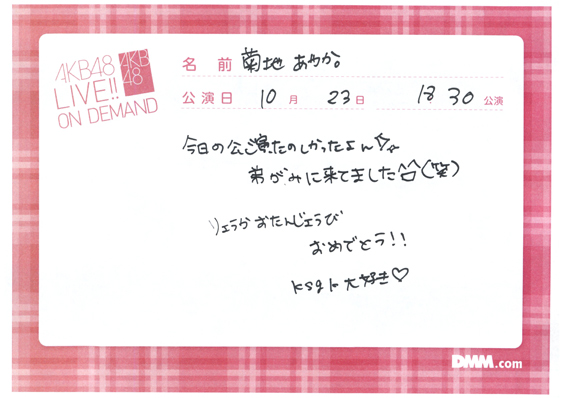 AKB48
LIVE!!
ON DEMAND
AKB
48
名 前 菊地あやか。
公演日 10月 23日 18 30 公演
今日の公演たのしかったょん☆
弟がみに来てました^^(笑)
りょうかおたんじょうび
おめでとう!!
大好き♡
DMM.com